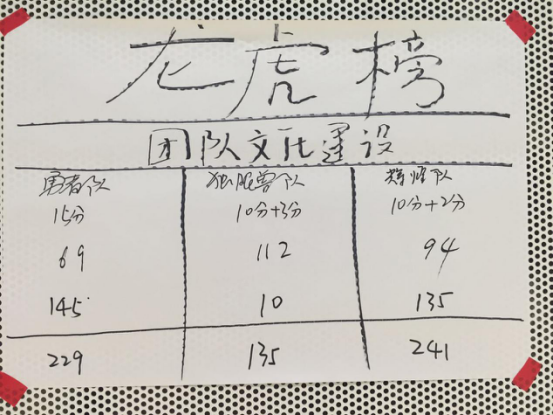 龙虎榜
团队文化建设
勇者队 独角兽队 辉煌队
15分 10分+3分 10分+2分
69 112 94
145 10 135
229 135 241